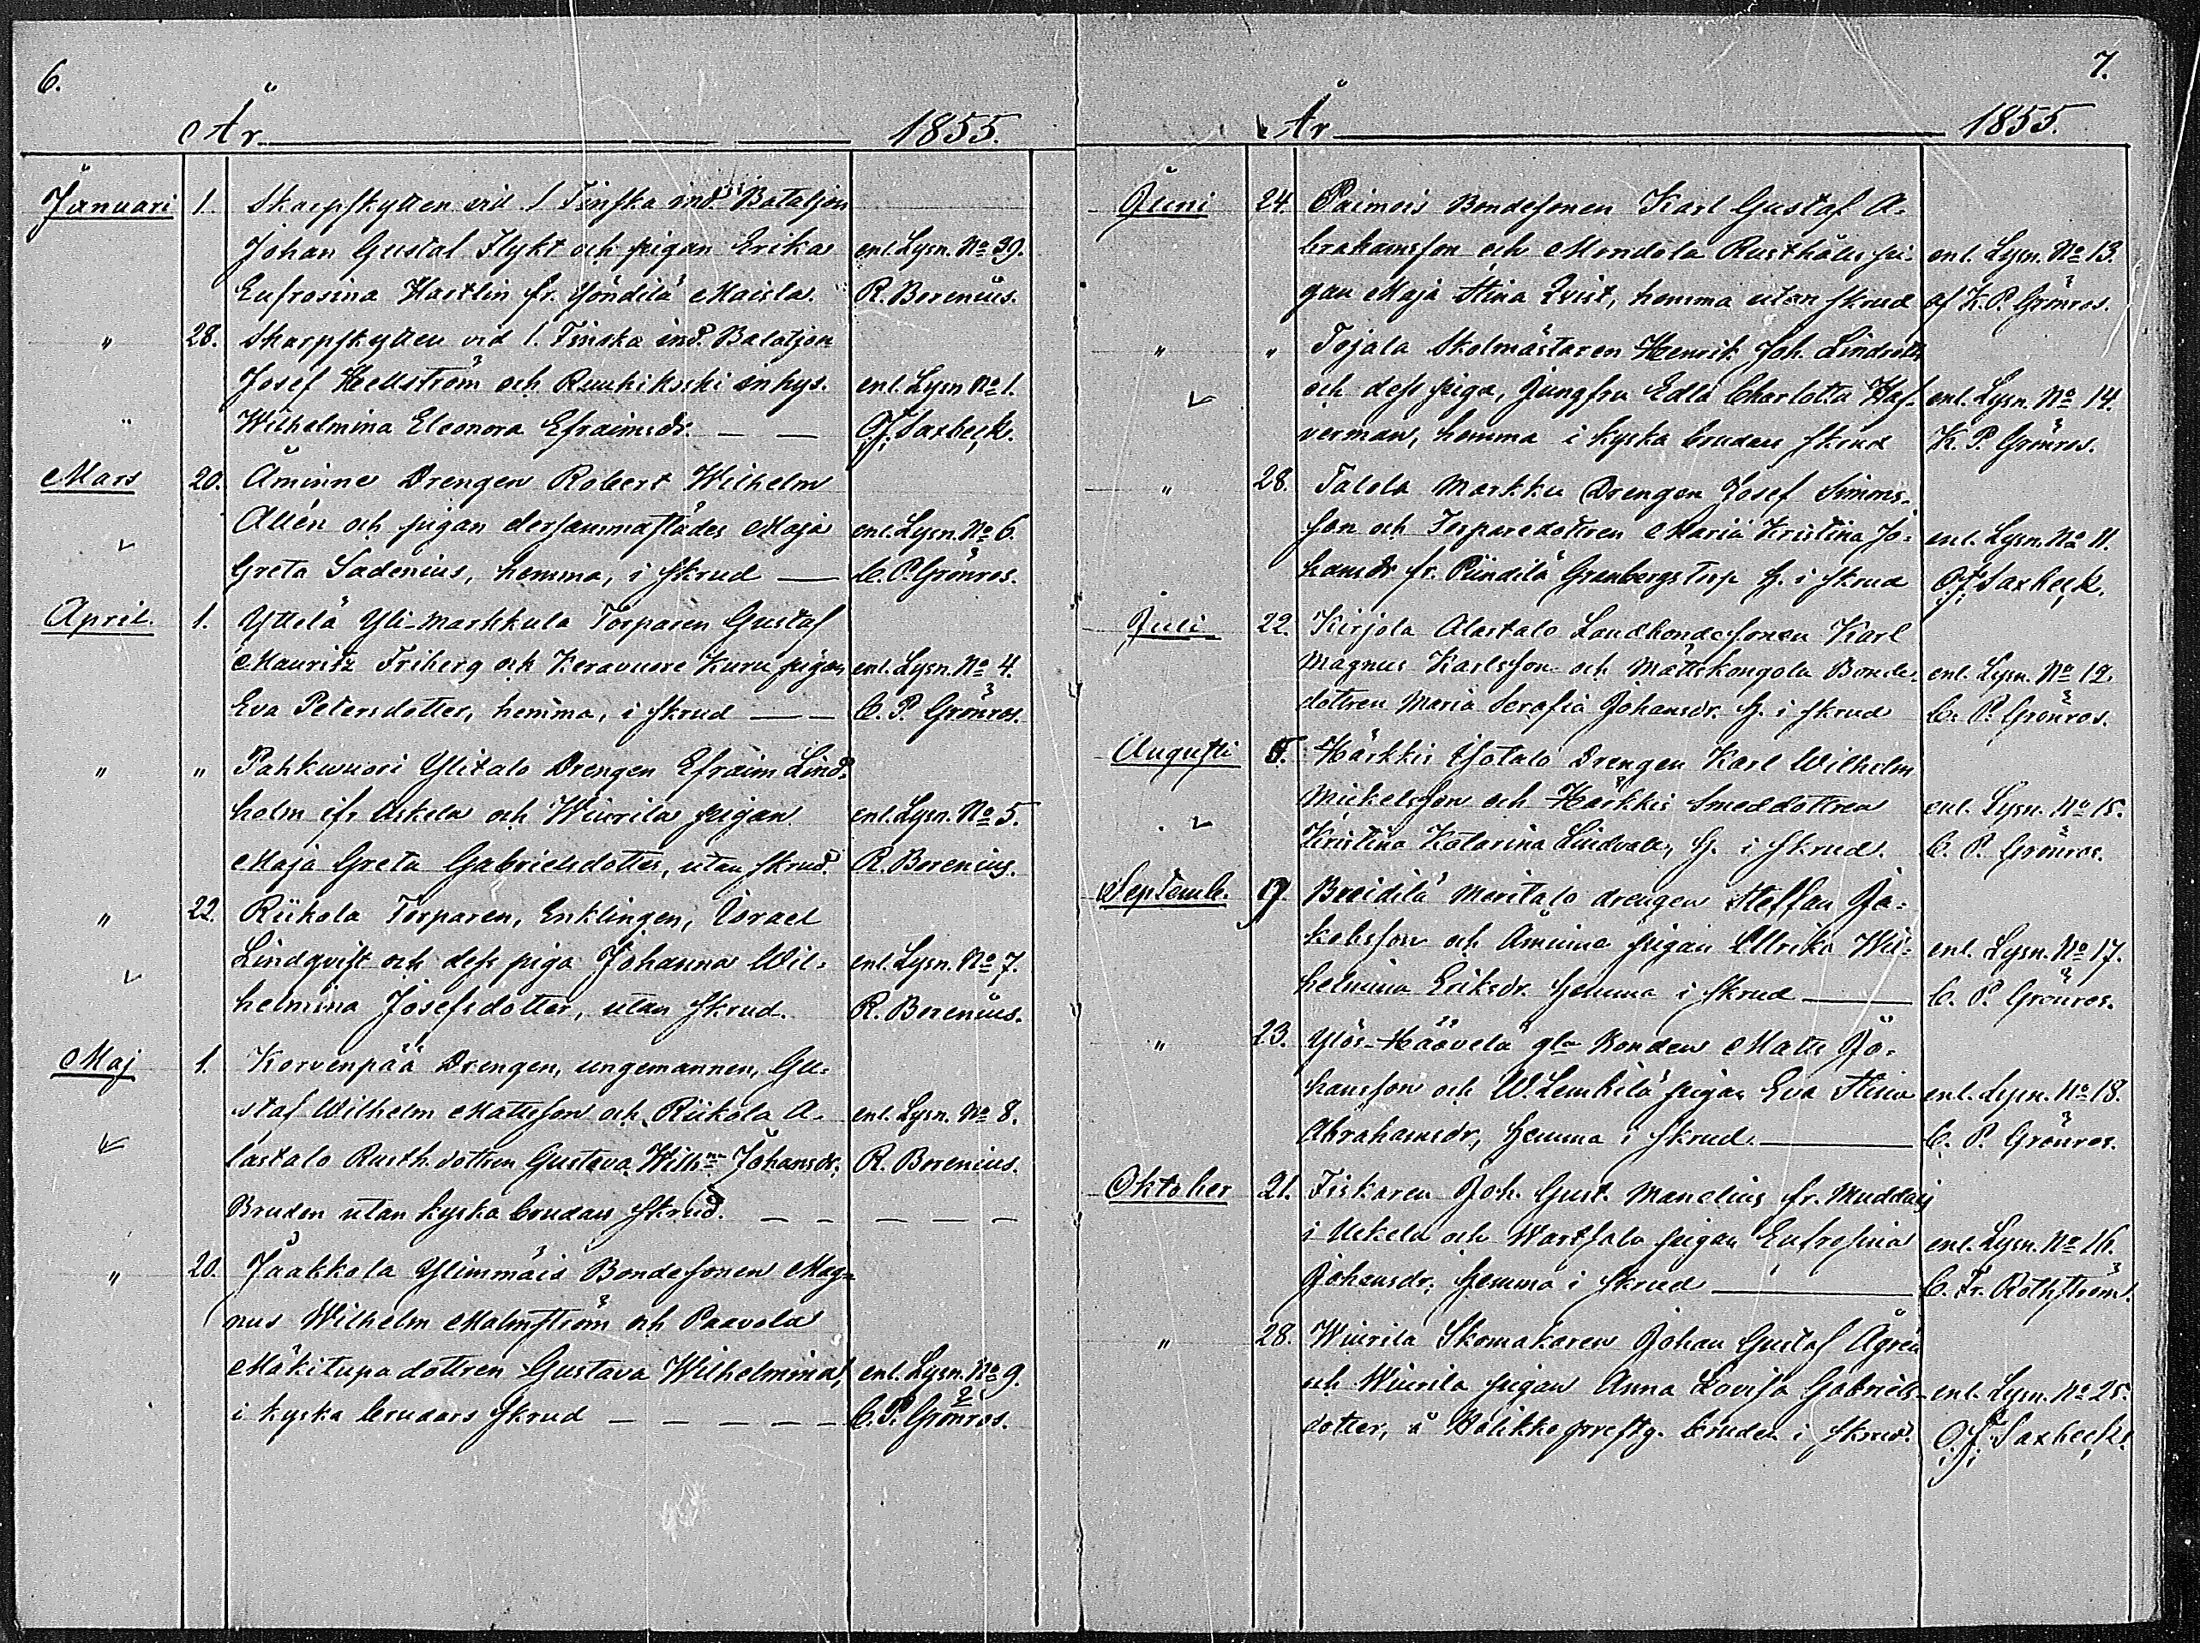 6.
År 1855.
Januari 1. Skarpskytten vid 1 Finska ind. Bataljon
Johan Gustaf Flykt och pigan Erika enl. Lysn. No 39.
Eufrosina Hartlin fr. Yöndilä Maisla. R. Borenius.
" 28. Skarpskytten vid 1. Finska ind. Bataljon
Josef Hellström och Ruuhikoski inhys. enl. Lysn No 1.
" Wilhelmina Eleonora Efraimsdr. — — O.J. Saxbeck.
Mars 20. Åminne Drengen Robert Wilhelm
Allén och pigan dersammastädes Maja enl. Lysn. No 6.
Greta Sadenius, hemma, i skrud — C. P. Grönros.
April. 1. Yttelä Yli-Markkula Torparen Gustaf
Mauritz Friberg och Keravuore Kuru pigan enl. Lysn. No 4.
Eva Petersdotter, hemma, i skrud — — C. P. Grönros.
" " Pahkwuori Ylitalo Drengen Efraim Lind-
holm ifr. Uskela och Wiurila pigan enl. Lysn. No 5.
Maja Greta Gabrielsdotter, utan skrud. R. Borenius.
" 22. Riikola Torparen, Enklingen, Israel
Lindqvist och dess piga Johanna Wil- enl. Lysn. No 7.
helmina Josefsdotter, utan skrud. R. Borenius.
Maj 1. Korvenpää Drengen, ungemannen, Gu-
staf Wilhelm Mattsson och Riikola A- enl. Lysn. No 8.
lastalo Rusth. dottren Gustava Wilhna Johansdr. R. Borenius.
Bruden utan kyska brudars skrud. — — — — —
" 20. Jaakkola Ylimmäis Bondesonen Mag-
nus Wilhelm Malmström och Paavola
Mäkitupa dottren Gustava Wilhelmina, enl. Lysn. No 9.
i kyska brudars skrud — — — — — C. P. Grönros.
7.
År 1855.
Juni 24. Paimois Bondesonen Karl Gustaf A-
brahamsson och Mondola Rusthålls pi- enl. Lysn. No 13.
gan Maja Stina Qvist, hemma utan skrud af K. P. Grönros.
" " Tojala Skolmästaren Henrik Joh. Lindroth
och dess piga, Jungfru Edla Charlotta Haf- enl. Lysn. No 14.
verman, hemma i kyska brudars skrud K. P. Grönros.
" 28. Talola Markku Drengen Josef Simons-
son och Torparedottren Maria Kristina Jo- enl. Lysn. No 11.
hansdr fr. Pündilä Grenbergs torp h. i skrud O.J. Saxbeck.
Juli 22. Kirjola Alastalo Landbondesonen Karl
Magnus Karlsson och Mättskongola Bonde- enl. Lysn. No 12.
dottren Maria Serafia Johansdr. h. i skrud C. P. Grönros.
Augusti 5. Härkkis Isotalo Drengen Karl Wilhelm
Mickelsson och Härkkis Smeddottren enl. Lysn. No 15.
Kristina Katarina Lindvall, h. i skrud. C. P. Grönros.
Septemb. 9. Breidilä Meritalo drengen Steffan Ja-
kobsson och Åminne pigan Ullrika Wil- enl. Lysn. No 17.
helmina Eriksdr. hemma i skrud — C. P. Grönros.
" 23. Ylös-Häävelä gla Bonden Matts Jo-
hansson och W. Lemkilä pigan Eva Stina enl. Lysn. No 18.
Abrahamsdr, hemma i skrud. — C. P. Grönros.
Oktober 21. Fiskaren Joh. Gust. Manelius fr. Muddais
i Uskela och Wartsalo pigan Eufrosina enl. Lysn. No 16.
Johansdr. hemma i skrud — C. Fr. Rothström.
" 28. Wiurila Skomakaren Johan Gustaf Ågren
och Wiurila pigan Anna Lovisa Gabriels- enl. Lysn. No 25.
dotter, å Halikko prestg. bruden i skrud. O.J. Saxbeck.